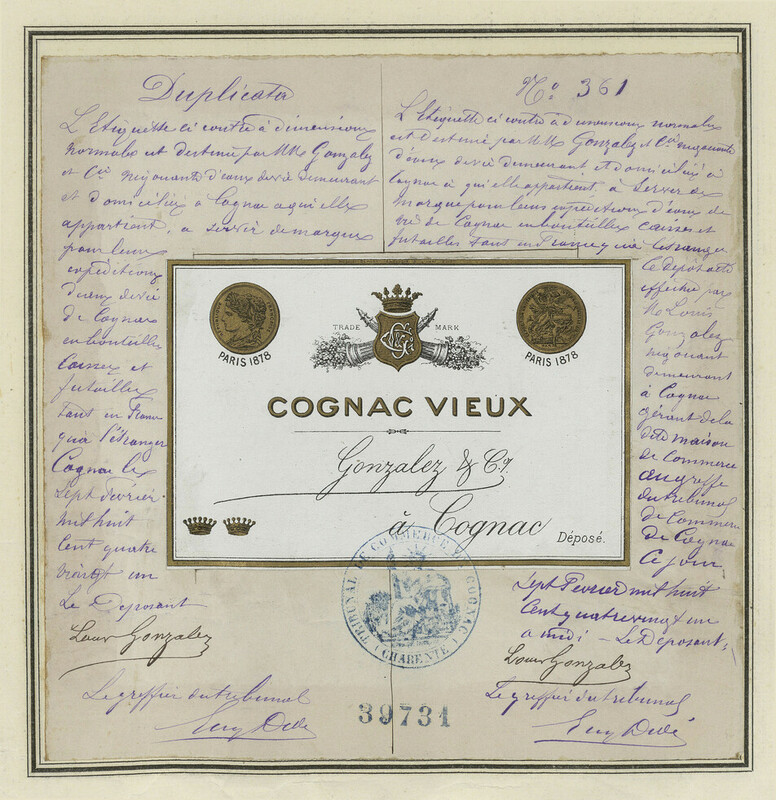 Duplicata
L'Etiquette ci contre à dimensions
normales est destinée par MM Gonzalez
et Cie négociants d'eaux de vie demeurant
et domiciliés à Cognac à qui elle
appartient, a servir de marque
pour leurs
expéditions
d'eaux de vie
de Cognac
en bouteilles
Caisses et
futailles
tant en France
qu'à l'étranger
Cognac le
Sept Février
mil huit
Cent quatre
vingt un
Le Déposant
Louis Gonzalez
Le greffier du tribunal
No 361
L'Etiquette ci contre à dimensions normales
est destinée par MM Gonzalez et Cie négociants
d'eaux de vie demeurant et domiciliés à
Cognac à qui elle appartient, à servir de
marque pour leurs expéditions d'eaux de
vie de Cognac en bouteilles caisses et
futailles tant en France qu'à l'étranger
Ce dépôt a été
effectué par
M Louis
Gonzalez
négociant
demeurant
à Cognac
gérant de la
dite maison
de Commerce
au greffe
du tribunal
de Commerce
de Cognac
Ce jour
Sept Février mil huit
Cent quatre vingt un
a midi – Le Déposant,
Louis Gonzalez
Le greffier du tribunal
PARIS 1878
TRADE MARK
PARIS 1878
COGNAC VIEUX
Gonzalez & Cy.
à Cognac
Déposé.
TRIBUNAL DE COMMERCE DE COGNAC
(CHARENTE)
39731